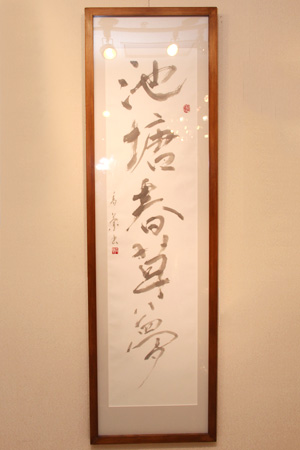 池塘春草夢